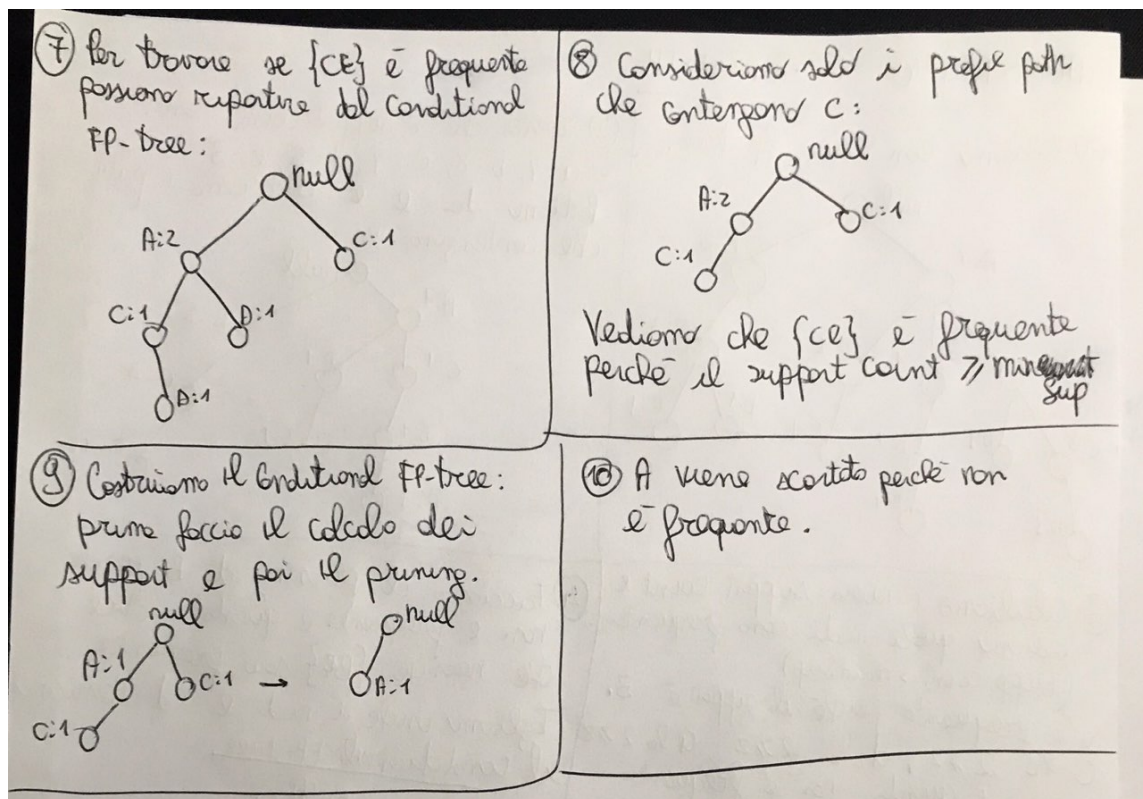 7 Per trovare se {CE} é frequente
possiamo ripartire dal conditional
FP-tree:
null
A:2
C:1
C:1
D:1
D:1
8 Consideriamo solo i prefix path
che contengono C:
null
A:2
C:1
C:1
Vediamo che {CE} é frequente
perché il support count ≥ min
sup
9 Costruiamo il Conditional FP-tree:
prima faccio il calcolo dei
support e poi il pruning.
null
null
A:1
C:1 → A:1
C:1
10 A viene scartato perché non
é frequente.